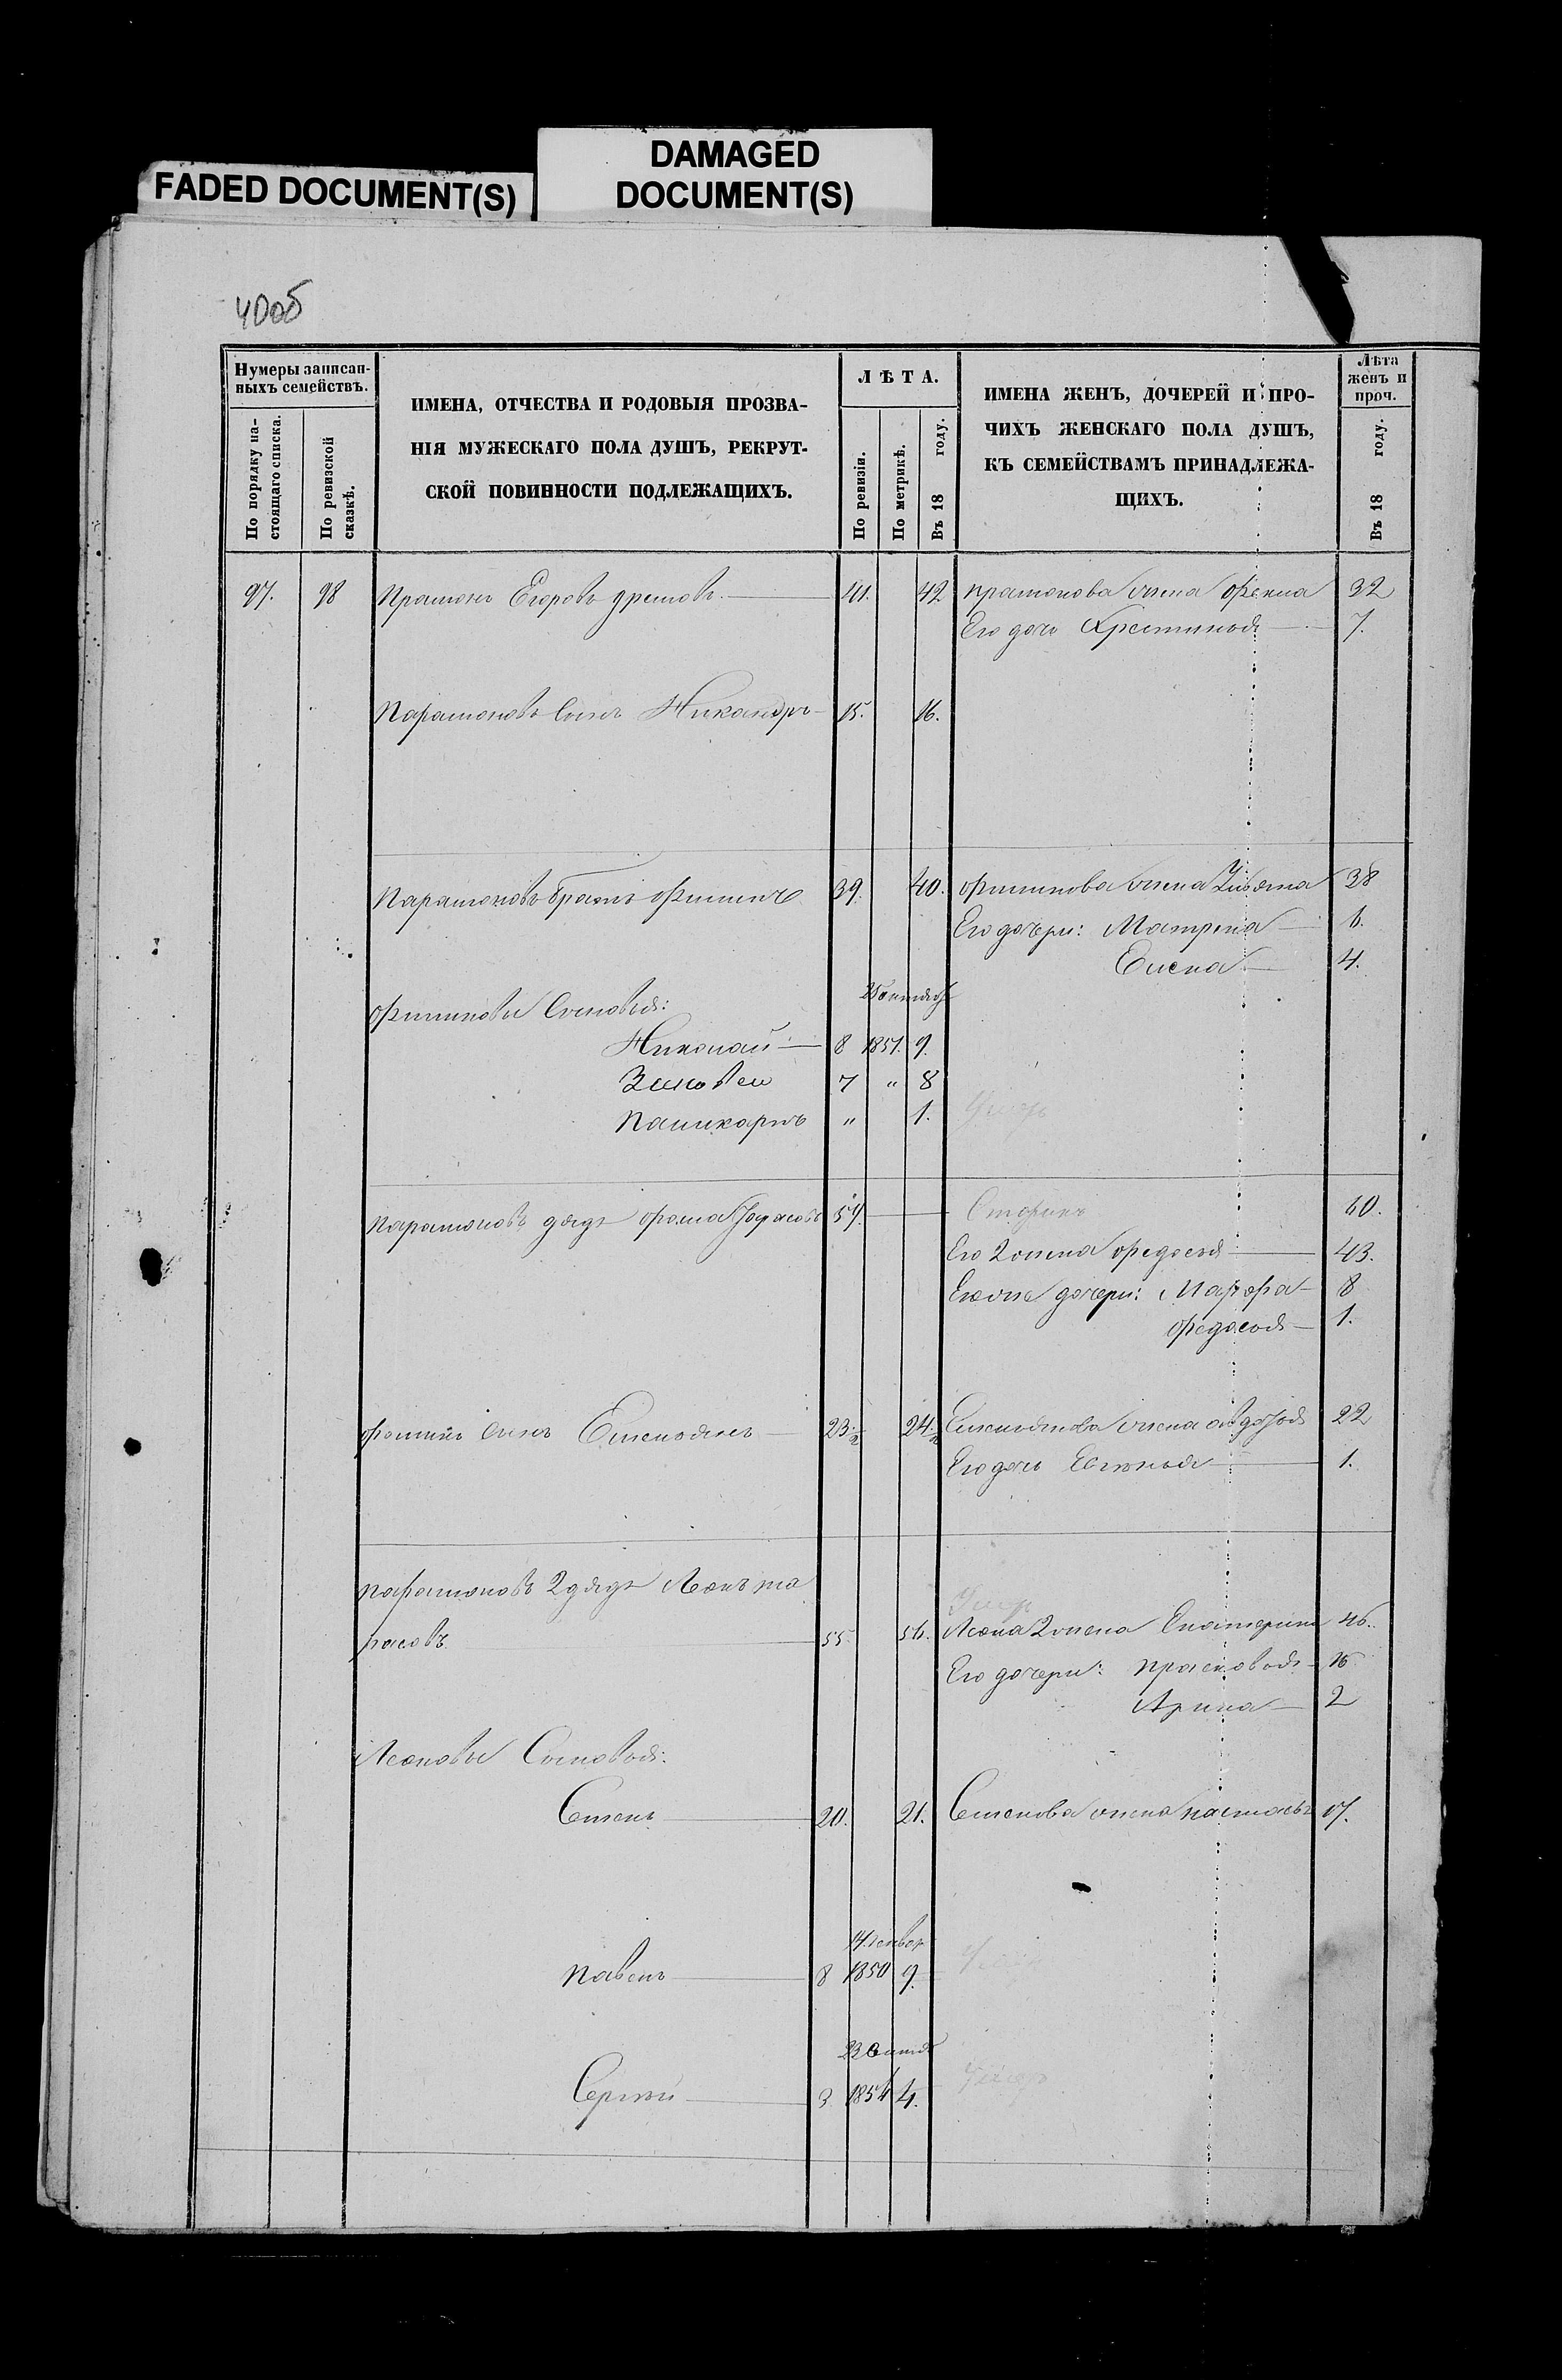 FADED DOCUMENT(S)
DAMAGED
DOCUMENT(S)
40об
Нумеры записан-
ныхъ семействъ.
По порядку на-
стоящаго списка.
По ревизской
сказкѣ.
ИМЕНА, ОТЧЕСТВА И РОДОВЫЯ ПРОЗВА-
НІЯ МУЖЕСКАГО ПОЛА ДУШЪ, РЕКРУТ-
СКОЙ ПОВИННОСТИ ПОДЛЕЖАЩИХЪ.
ЛѢТА.
По ревизіи.
По метрикѣ.
Въ 18 году.
ИМЕНА ЖЕНЪ, ДОЧЕРЕЙ И ПРО-
ЧИХЪ ЖЕНСКАГО ПОЛА ДУШЪ,
КЪ СЕМЕЙСТВАМЪ ПРИНАДЛЕЖА-
ЩИХЪ.
Лѣта
женъ и
проч.
Въ 18 году.
97. 98 Прамонъ Егоровъ 41. 42 прамонова жена Фекла 32
Его дочь Хрестинья 7.
Парамоновъ Сынъ Никандръ 15. 16.
Парамоновъ братъ Филипъ 39. 40. Филипова жена Ульяна 38
Его дочери: Матрена 6.
Елена 4.
Филиповы Сыновья: 25 октября
Николай 8 1851. 9.
Зиновей 7 " 8
Паликарпъ " 1. Умеръ
Парамоновъ дядя Фома Тарасовъ 59. 60.
Его 2 жена Федосья 43.
Его же дочери: Марфа 8
Федосья 1.
Фоминъ Сынъ Емельянъ 23 1/2 24 1/2 Емельянова жена авдотья 22
Его дочь Евгенья 1.
парамоновъ 2 дядя Леонъ та
расовъ 55. 56. Леона 2 жена Екатерина 46.
Умеръ
Его дочери: прасковья 16
Арина 2
Леоновы Сыновья:
Семенъ 20. 21. Семенова жена настасья 17.
павелъ 8 1850 9.
Сергѣй 3 1854 4. Умеръ